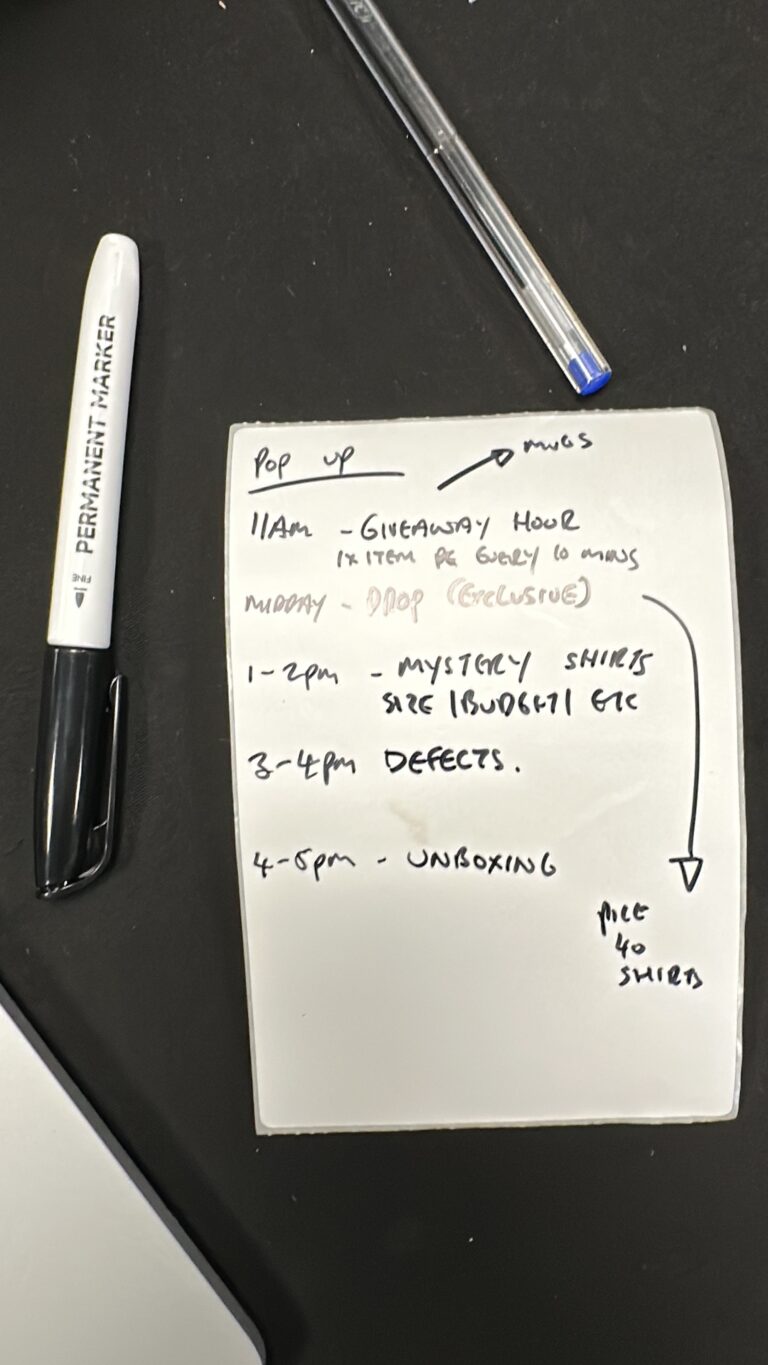 PERMANENT MARKER
FINE
Pop up
MUGS
11AM - GIVEAWAY HOUR
1X ITEM EVERY 10 MINS
MIDDAY - DROP (EXCLUSIVE)
1-2pm - MYSTERY SHIRTS
SIZE |BUDGET| ETC
3-4pm DEFECTS.
4-5pm - UNBOXING
40
SHIRTS